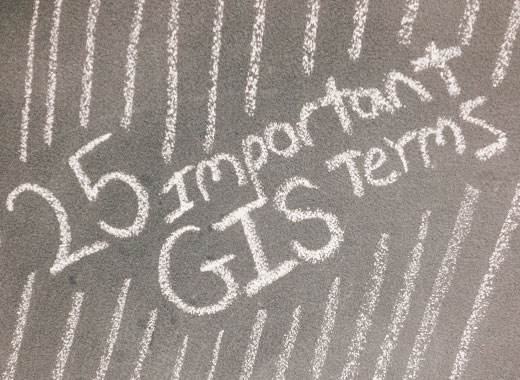 25 Important
GIS Terms